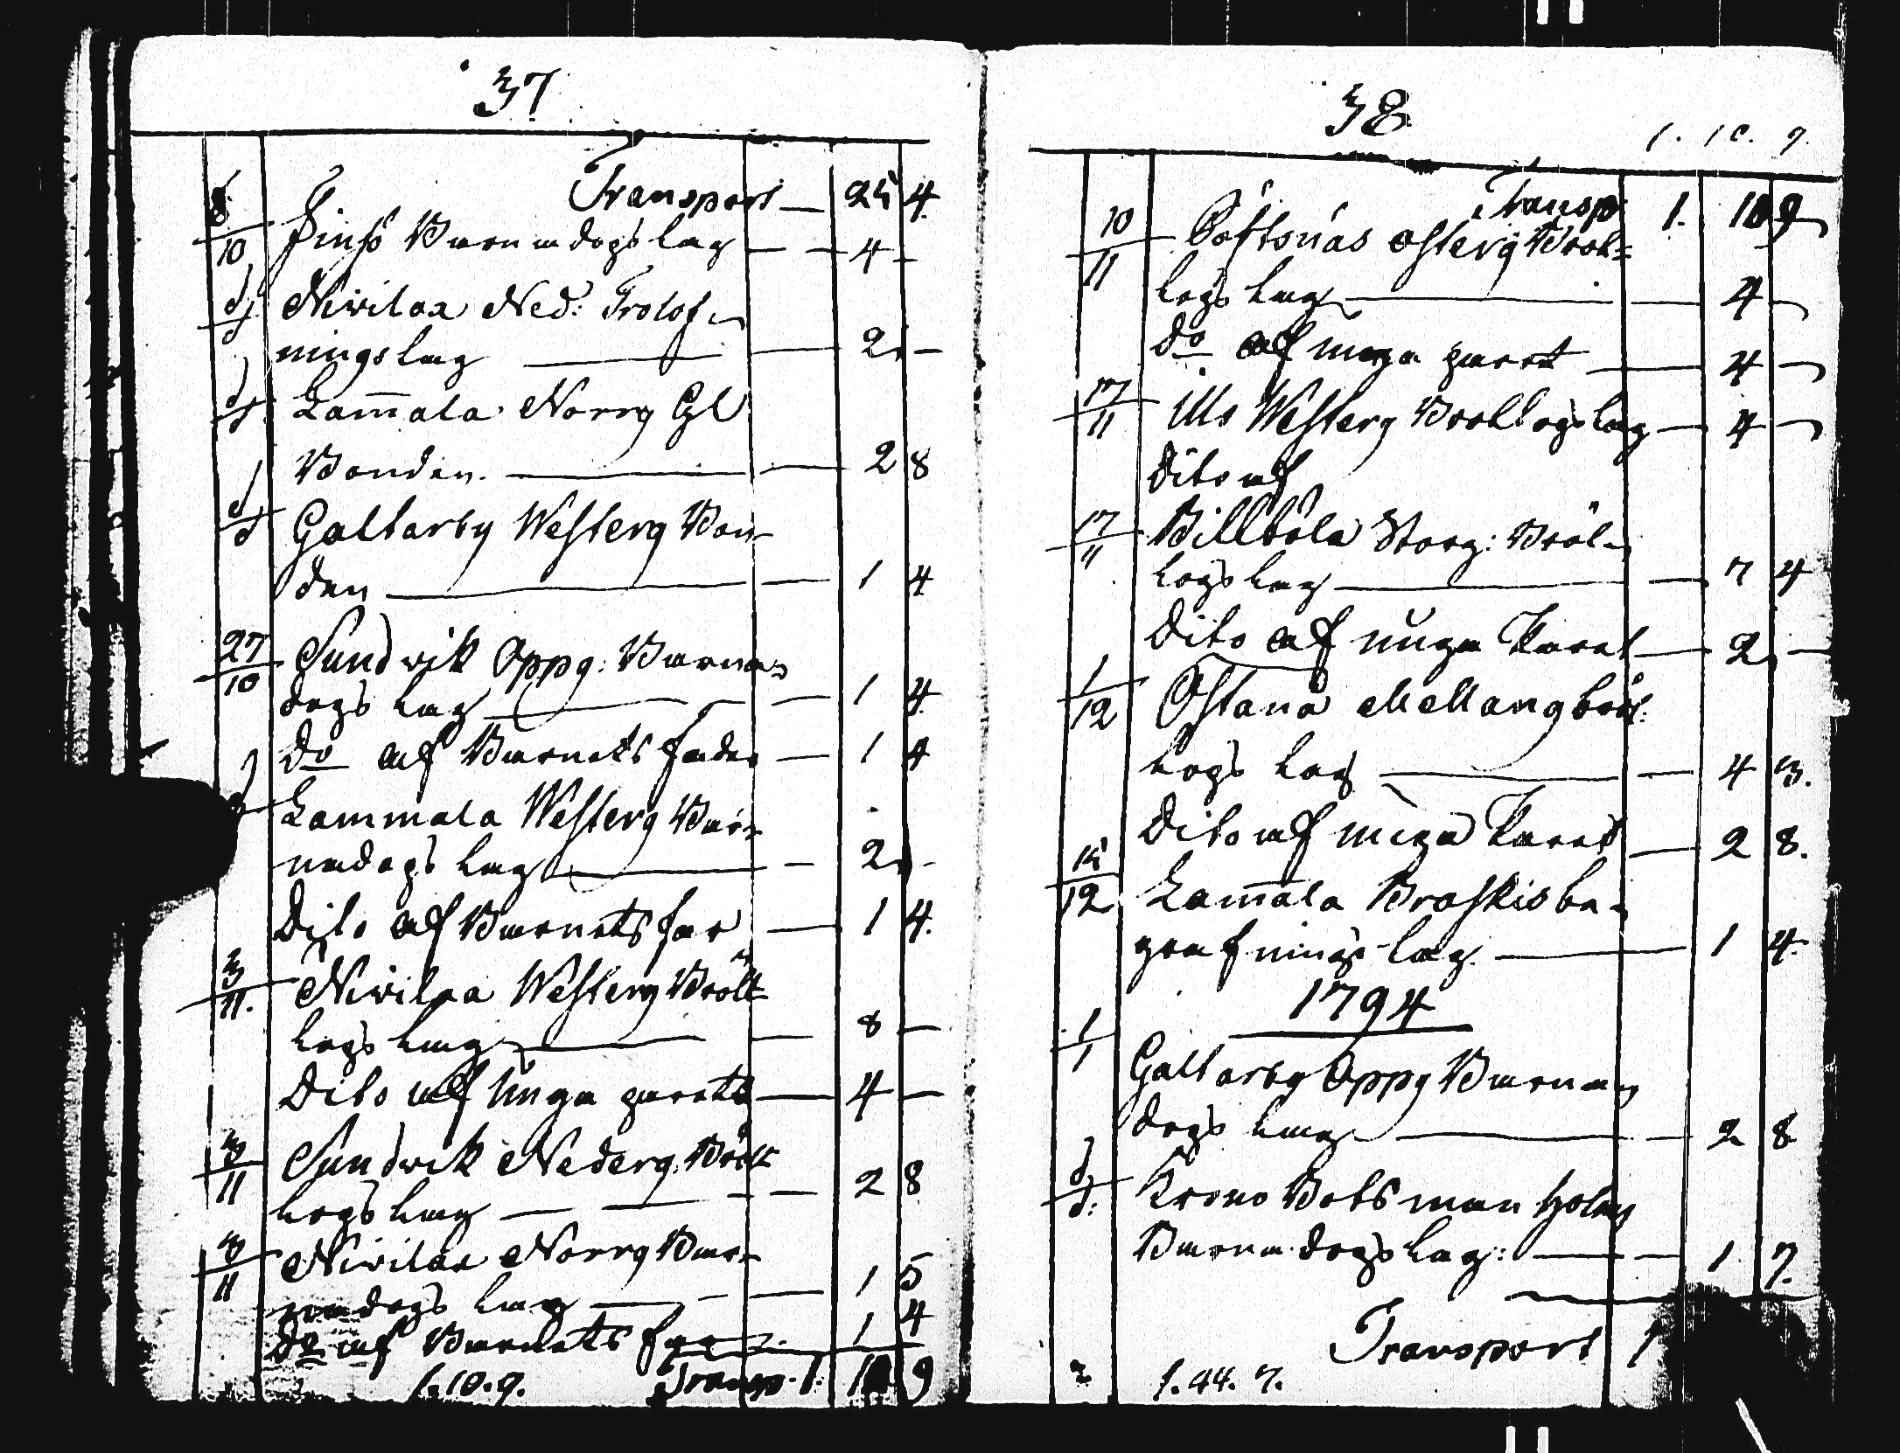 37
Transport — 25 4
8/10 Finsö Barnadops lag — 4 —
d/d Nivilax Ned: Trolof-
ningslag — 2 —
d/d Lam̄ala Norrg Gl
Bonden. — 2 8
d/d Galtarby Westerg Bon-
den — 1 4
27/10 Sundvik Oppg: Barna-
dops lag — 1 4
Do af Barnets fader — 1 4
Lammala Westerg Bar-
nadops lag — 2 -
Dito af Barnets far — 1 4.
3/11. Nivilax Westerg Bröl-
lops lag — 8 —
Dito af Unga parets — 4 —
3/11 Sundvik Nederg. Bröl-
lops lag — 2 8
3/11 Nivilax Norrg Bar-
nadops lag — 1 5
Do af Barnets far 1 4
1. 10. 9. Transp. 1. 10 9
38
1. 10. 9.
Transp 1. 10 9
10/11 Böftsnäs Osterg Bröl-
lops lag — 4 —
Do af unga paret — 4 —
17/11 Ills Westerg Bröllopslag — 4 —
Dito af
17/11 Billböla Storg: Bröl-
lops lag — 7 4
Dito af unga Paret — 2 —
1/12 Ostanå Mellangbröl:
lops lag — 4 3.
Dito af unga Paret — 2 8.
15/12 Lam̄ala Broskis be-
grafnings lag. — 1 4
1794
1/1 Galtarby Oppg Barna-
dops lag — 2 8
d/d: Krono Botsman Holm
Barnadops lag: — 1 7.
Transport 1
1. 44. 7.